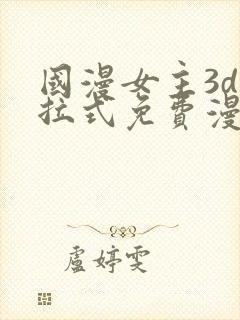 國漫女主3d
拉式免費漫
盧婷雯